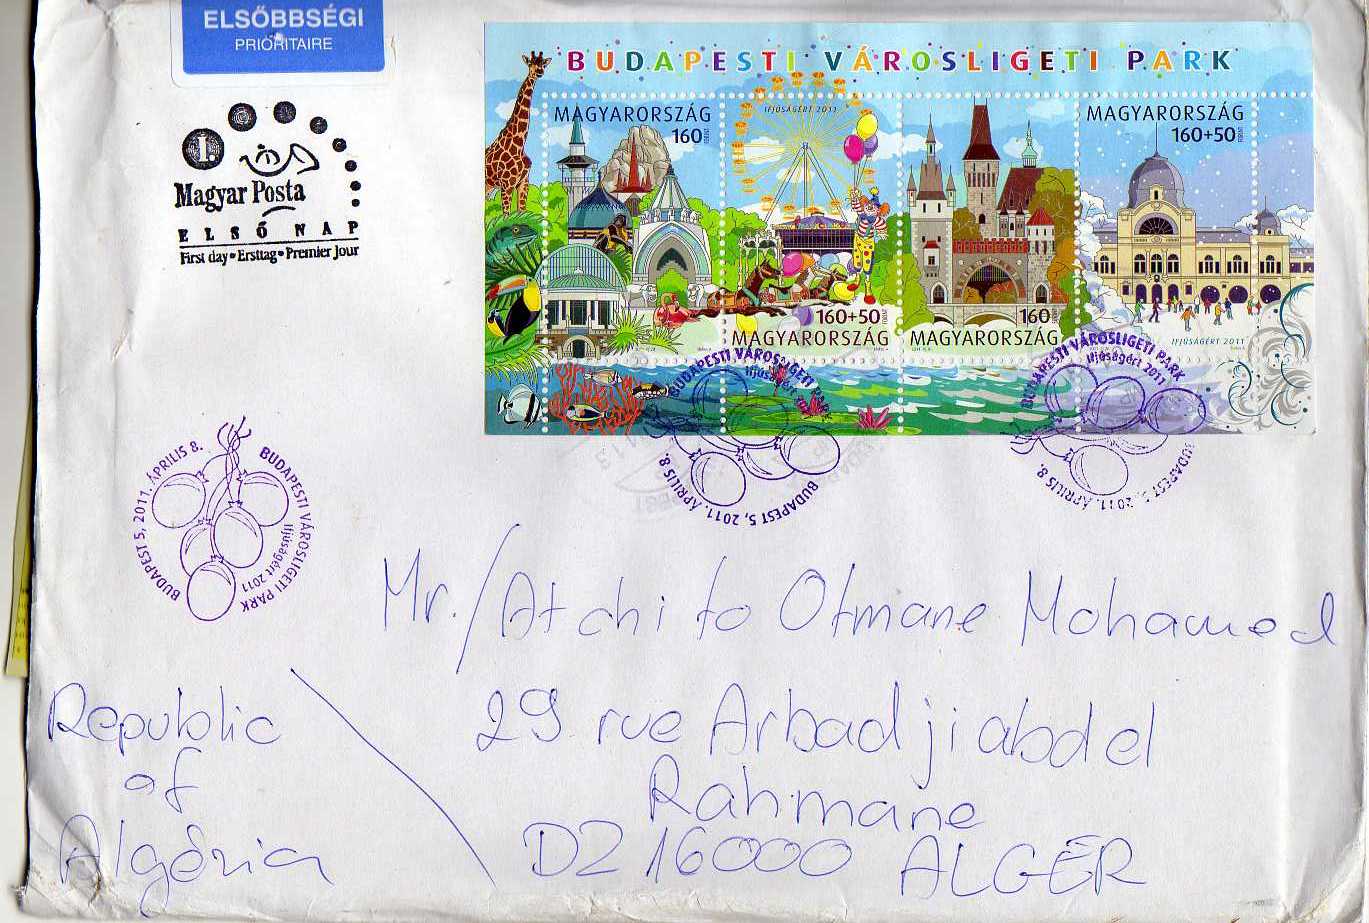 ELSŐBBSÉGI
PRIORITAIRE
I.
Magyar Posta
ELSŐ NAP
First day • Ersttag • Premier Jour
BUDAPESTI VÁROSLIGETI PARK
MAGYARORSZÁG
160
IFJÚSÁGÉRT 2011
160+50
MAGYARORSZÁG
160
MAGYARORSZÁG
MAGYARORSZÁG
160+50
IFJÚSÁGÉRT 2011
BUDAPESTI VÁROSLIGETI PARK
Ifjúságért
BUDAPEST 5, 2011. ÁPRILIS 8.
BUDAPESTI VÁROSLIGETI PARK
Ifjúságért 2011
BUDAPEST 5, 2011. ÁPRILIS 8.
BUDAPEST 5, 2011. ÁPRILIS 8.
BUDAPESTI VÁROSLIGETI PARK
Ifjúságért 2011
Mr./Atchito Otmane Mohamed
29 rue Arbadjiabdel
Rahmane
DZ 16000 ALGÉR
Republic
of
Algéria